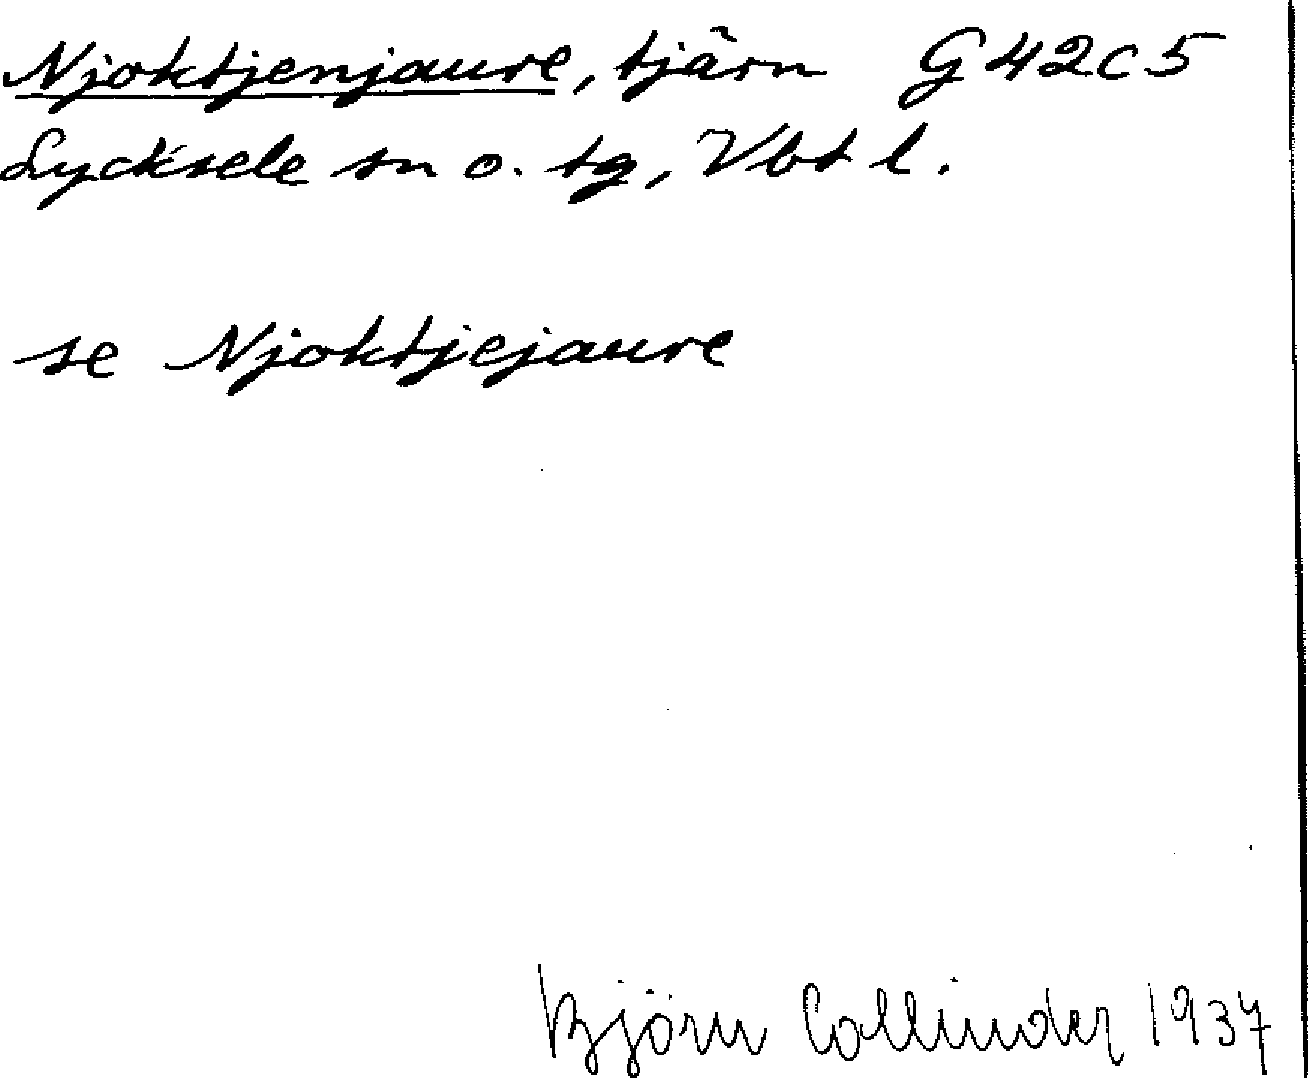 Njoktjenjaure, tjärn G42C5
Lycksele sn o. tg, Vbt l.
se Njoktjejaure
Björn Collinder 1937